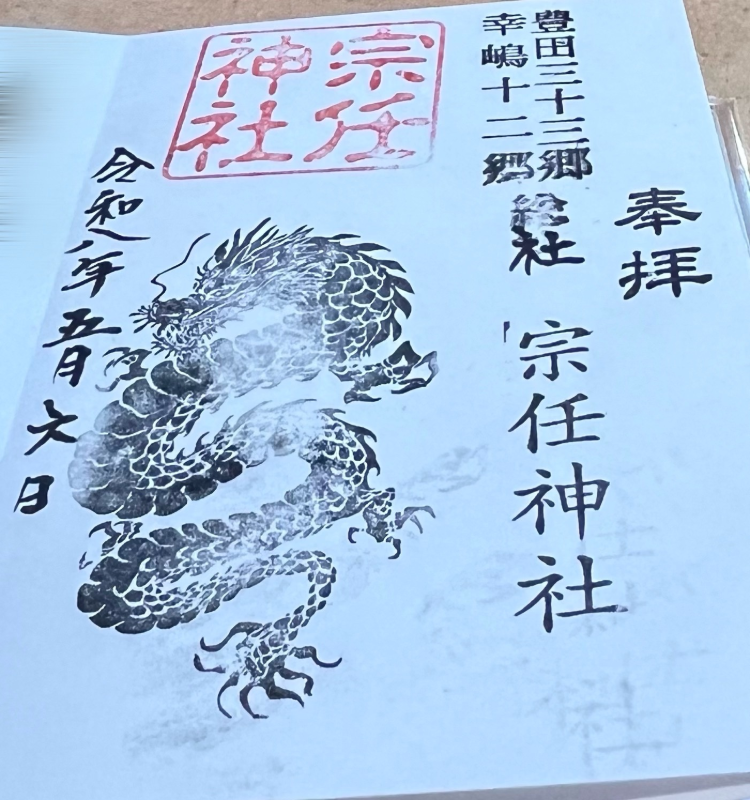 奉拝
豊田三十三郷
幸嶋十二郷
総社
宗任神社
宗任
神社
令和八年五月六日